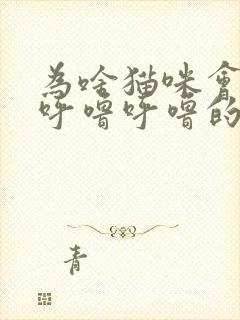 為啥猫咪會
呼嚕呼嚕的
青